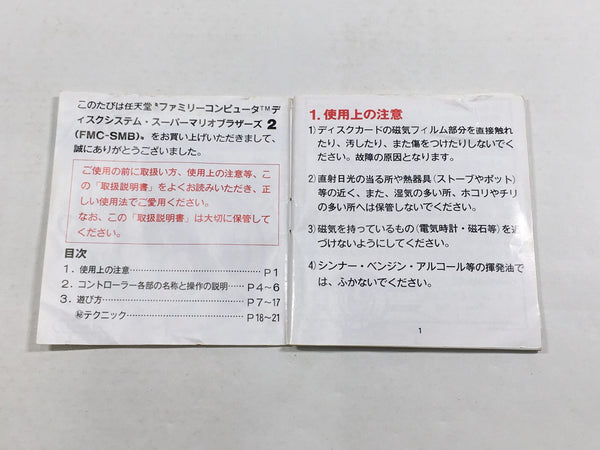 このたびは任天堂〝ファミリーコンピュータ™ディ
ィスクシステム・スーパーマリオブラザーズ 2
(FMC-SMB)〟をお買い上げいただきまして、
誠にありがとうございました。
ご使用の前に取扱い方、使用上の注意等、こ
の「取扱説明書」をよくお読みいただき、正
しい使用法でご愛用ください。
なお、この「取扱説明書」は大切に保管して
ください。
目次
1. 使用上の注意……P1
2. コントローラー各部の名称と操作の説明……P4~6
3. 遊び方……P7~17
㊙テクニック……P18~21
1. 使用上の注意
1)ディスクカードの磁気フィルム部分を直接触れ
たり、汚したり、また傷をつけたりしないでく
ださい。故障の原因となります。
2)直射日光の当る所や熱器具(ストーブやポット)
等の近く、また、湿気の多い所、ホコリやチリ
の多い所へは保管しないでください。
3)磁気を持っているもの(電気時計・磁石等)を近
づけないようにしてください。
4)シンナー・ベンジン・アルコール等の揮発油で
は、ふかないでください。
1